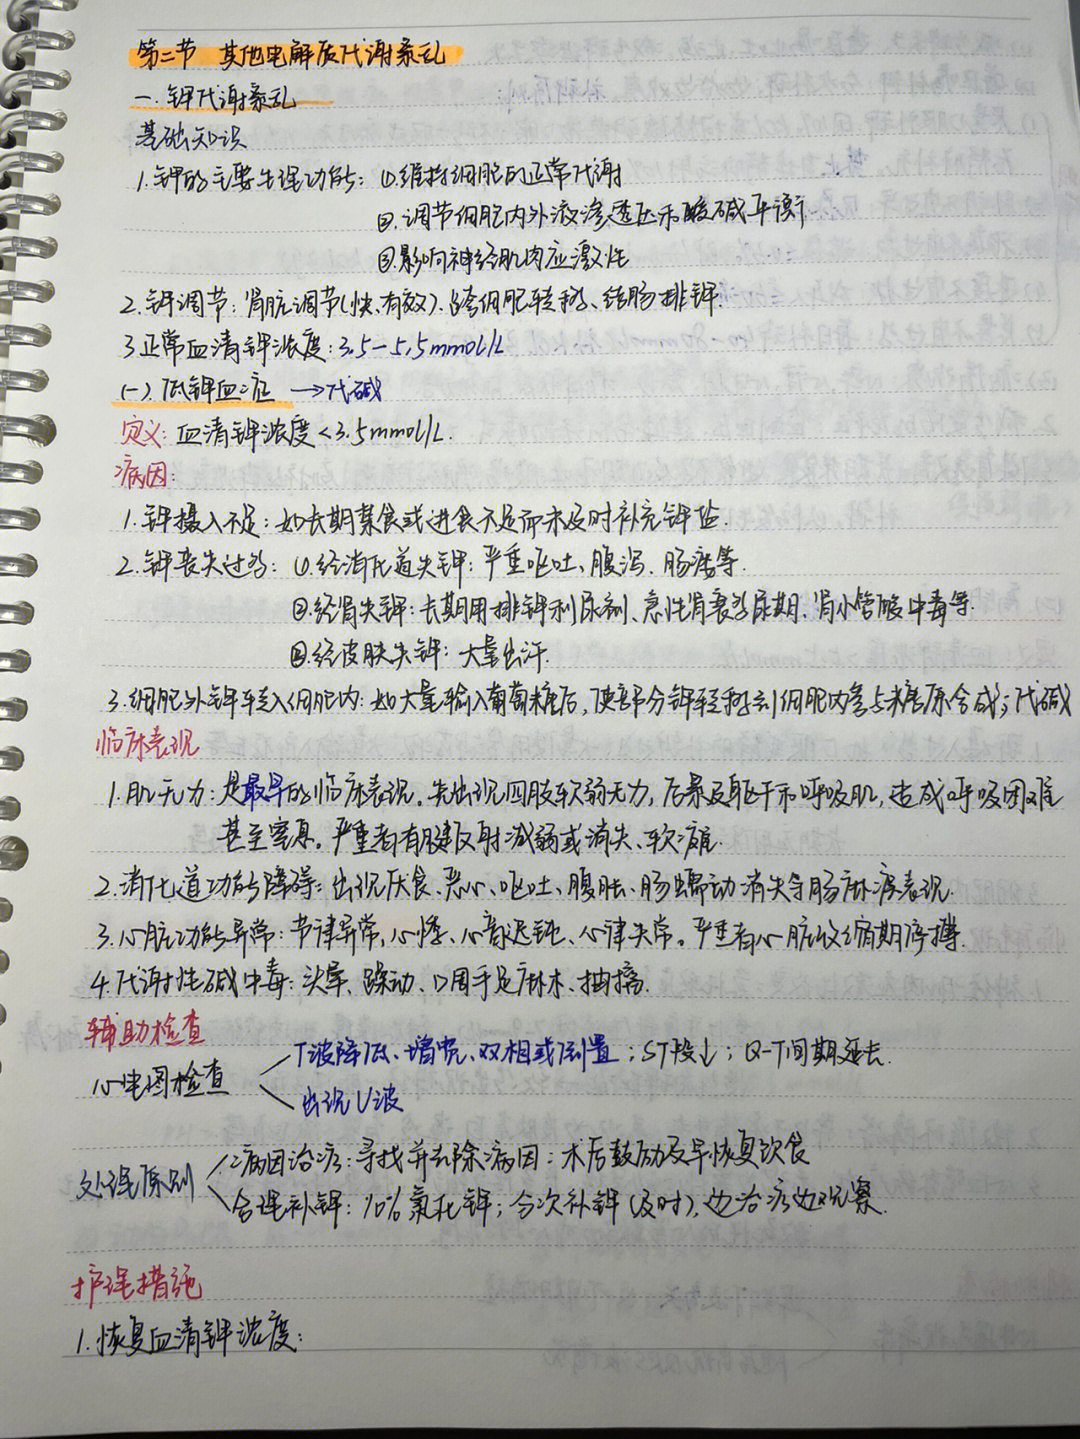 第二节 其他电解质代谢紊乱
一.钾代谢紊乱
基础知识
1.钾的主要生理功能：①.维持细胞的正常代谢
②.调节细胞内外液渗透压和酸碱平衡
③影响神经肌肉应激性
2.钾调节：肾脏调节(快、有效).跨细胞转移、结肠排钾.
3正常血清钾浓度：3.5-5.5mmol/L
(一).低钾血症 →代碱
定义：血清钾浓度<3.5mmol/L.
病因：
1.钾摄入不足：如长期禁食或进食不足而未及时补充钾盐.
2.钾丧失过多：①.经消化道失钾：严重呕吐、腹泻、肠瘘等.
②.经肾失钾：长期用排钾利尿剂、急性肾衰多尿期、肾小管酸中毒等.
③.经皮肤失钾：大量出汗.
3.细胞外钾转入细胞内：如大量输入葡萄糖后，使部分钾转移到细胞内参与糖原合成；代碱
临床表现
1.肌无力：是最早的临床表现。先出现四肢软弱无力，后累及躯干和呼吸肌，造成呼吸困难
甚至窒息。严重者有腱反射减弱或消失、软瘫.
2.消化道功能障碍：出现厌食、恶心、呕吐、腹胀、肠蠕动消失等肠麻痹表现.
3.心脏功能异常：节律异常，心悸、心音迟钝、心律失常。严重者心脏收缩期停搏.
4.代谢性碱中毒：头晕、躁动、口周手足麻木、抽搐.
辅助检查
T波降低、增宽、双相或倒置；ST段↓；Q-T间期延长.
心电图检查
出现U波
病因治疗：寻找并去除病因：术后鼓励及早恢复饮食
处理原则
合理补钾：10%氯化钾；分次补钾(及时)，边治疗边观察.
护理措施
1.恢复血清钾浓度：